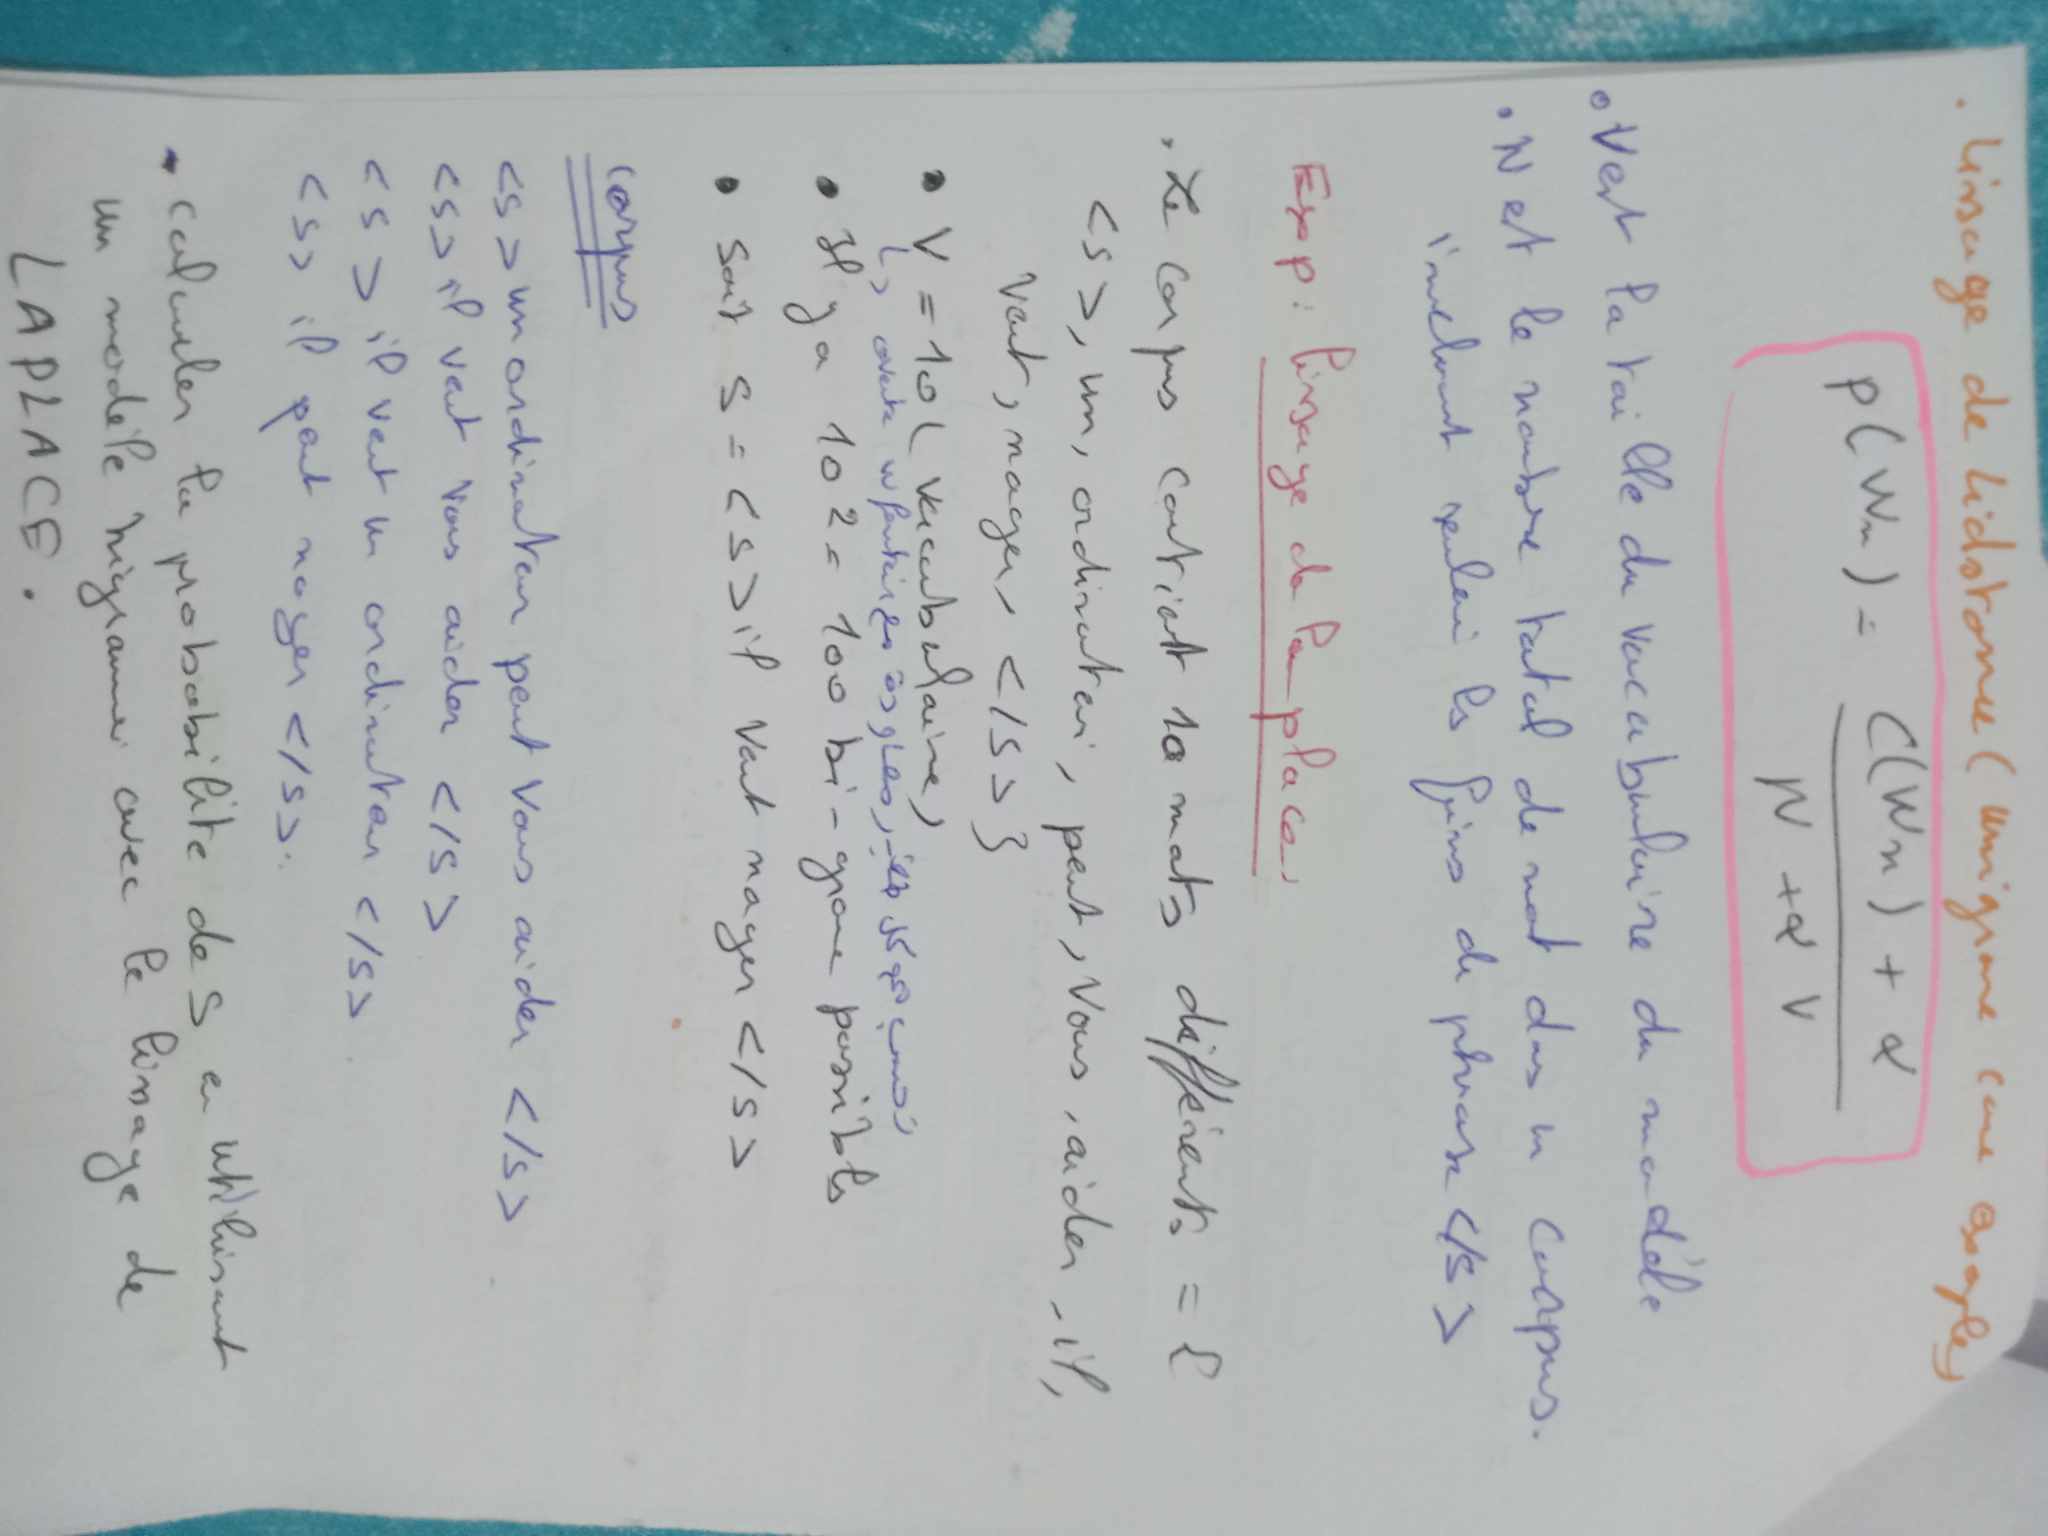 . lissage de lidstone ( unigrame cane
P(Wn) = C(Wn) + α / N + α V
• V est la taille du vocabulaire du modèle
• N et le nombre total de mot das un corpus.
incluant les fins de phrase </s>
Exp : lissage de la place
. Le corpus contient 10 mots différents = {
<s>, un, ordinateur, peut, vous, aider, il,
veut, nager, </s> }
• V = 10 ( vocabulaire,
• Il y a 10² = 100 bi-grame possibls
• Soit S = <s> il veut nager </s>
Corpus
<s> un ordinateur peut vous aider </s>
<s> il veut vous aider </s>
<s> il veut un ordinateur </s>
<s> il peut nager </s>.
• Calculer la probabilite de S en utilisant
un modèle bigramme avec le lissage de
LAPLACE.